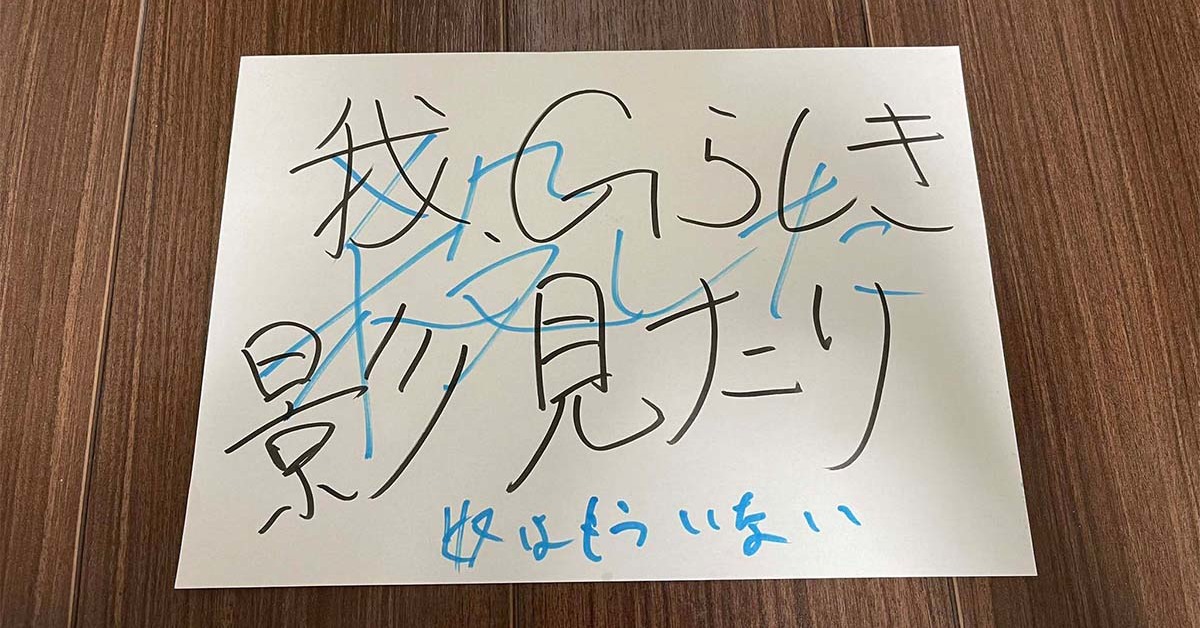 我、Gらしき
影見たり
奴はもういない